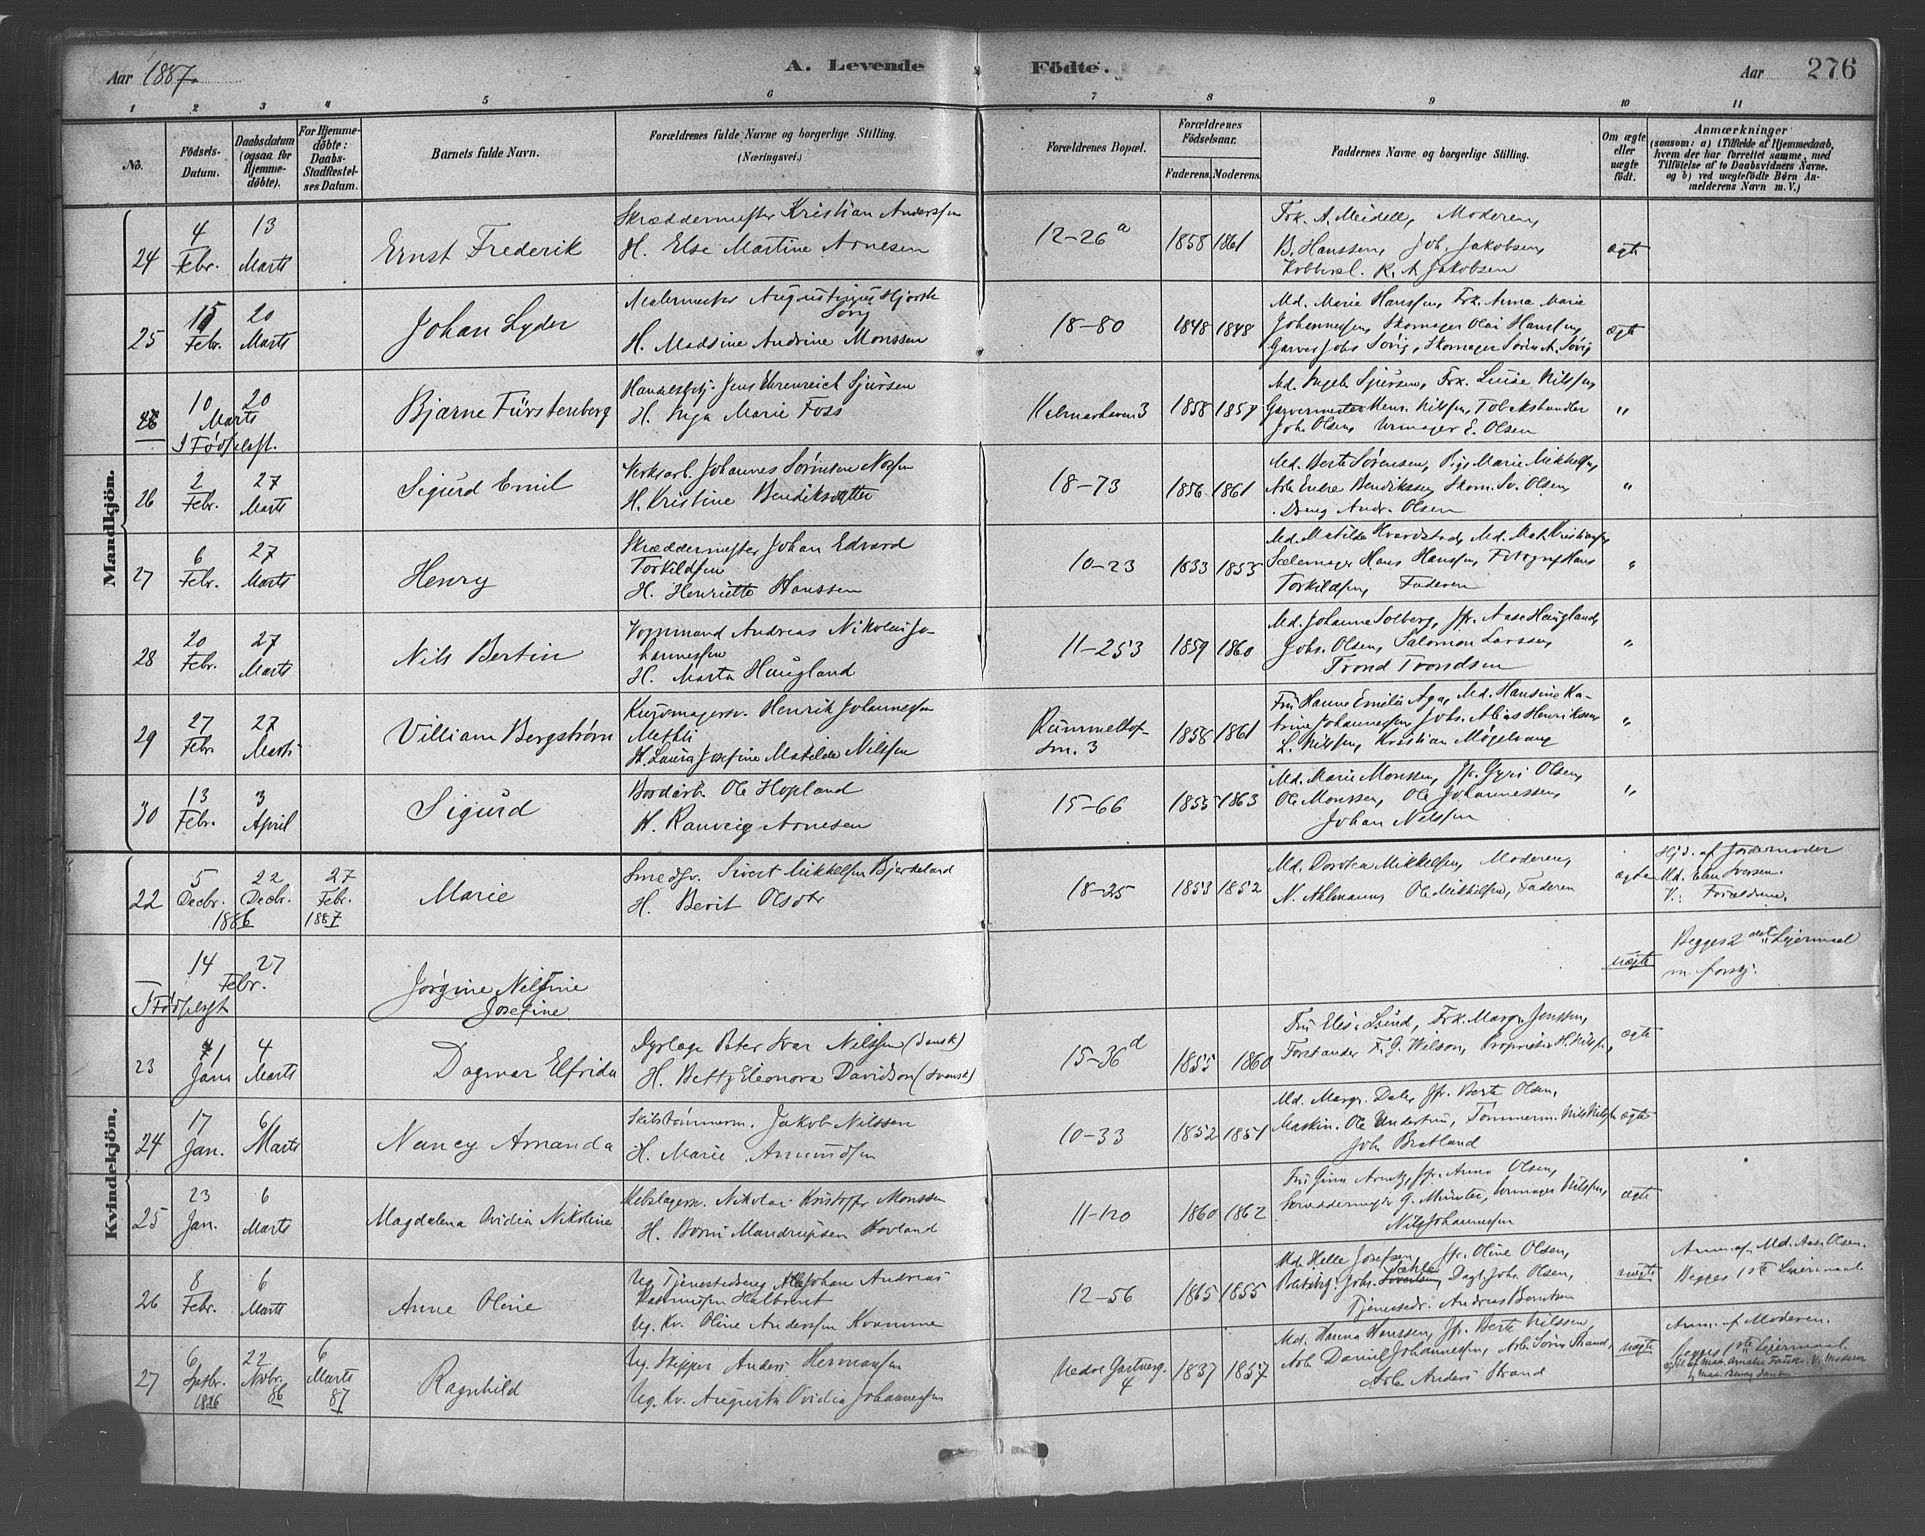 Aar 1887.
A. Levende Födte.
Aar 276
1 2 3 4 5 6 7 8 9 10 11
No.
Födsels-Datum.
Daabsdatum (ogsaa for Hjemme-döbte).
For Hjemme-döbte: Daabs-Stadfæstel-ses Datum.
Barnets fulde Navn.
Forældrenes fulde Navne og borgerlige Stilling.
(Næringsvei.)
Forældrenes Bopæl.
Forældrenes Födselsaar.
Faderens. Moderens.
Faddernes Navne og borgerlige Stilling.
Om ægte eller uægte födt.
Anmærkninger
(saasom: a) i Tilfælde af Hjemmedaab, hvem der har forrettet samme, med Tilföielse af to Daabsvidners Navne. og b) ved uægtefödte Börn An-melderens Navn m. V.)
Mandkjön.
24 4 Febr. 13 Marts Ernst Frederik
Skræddermester Kristian Anderssen
H. Else Martine Arnesen
12-26a 1858 1861
Frk. A. Meidell, Moderen,
B. Hanssen, Joh. Jakobsen,
Kobbersl. R. A. Jakobsen
ægte
25 15 Febr. 20 Marts Johan Lyder
Malermester Augustinus Hjorth
Sørg
H. Madsine Andrine Monssen
18-80 1848 1848
Md. Marie Hanssen, Frk. Anna Marie
Johannessen, Skomager Olai Hanssen,
Garver Johs Sørig, Skomager Sören A. Sørig
ægte
10 20 Marts Bjarne Fürstenberg
I Födselsrgst.
Handelsbetj. Jens Ehrenreich Sjursen
H. Inga Marie Foss
Kalmarhuven 3 1858 1859
Md. Ingeb. Sjursen, Frk. Luise Nilssen,
Garvermester Henr. Nilssen, Tobakshandler
Joh. Olsen, Urmager E. Olsen
"
26 2 Febr. 27 Marts Sigurd Emil
Verksarb. Johannes Sørensen
H. Kristine Bendiksdatter
18-73 1856 1861
Md. Berte Sørensen, Pige Marie Mikkelsen,
Arb. Endre Bendikssen, Skom. Sv. Olsen,
Dreng Andr. Olsen
"
27 6 Febr. 27 Marts Henry
Skræddermester Johan Edvard
Torkildsen
H. Henriette Hanssen
10-23 1833 1855
Md. Matilde Hvardstad, Md. Mat. Kristiansen,
Sælemager Hans Hanssen, Fotograf Hans
Torkildsen, Faderen
"
28 20 Febr. 27 Marts Nils Bertin
Vognmand Andreas Nikolai Jo-
hannessen
H. Marta Haugland
11-253 1859 1860
Md. Johanne Solberg, Jfr. Aase Haugland,
Johs. Olsen, Salomon Larssen,
Trond Trondsen
"
29 27 Febr. 27 Marts Villiam Bergstrøm
Kurvmagersv. Henrik Johannessen
Methli
H. Laura Josefine Matilde Nilssen
Rummelhof-
sm. 3 1858 1861
Fru Hanne Emilie Aga, Md. Hansine Ka-
trine Johannessen, Johs. Alias Henrikssen,
L. Nilssen, Kristian Møgelvang
"
30 13 Febr. 3 April Sigurd
Bordarb. Ole Hopland
H. Ranveig Arnesen
15-66 1855 1863
Md. Marie Monssen, Jfr. Gyri Olsen,
Ole Monssen, Ole Johannessen,
Johan Nilssen
"
Kvindekjön.
22 5 Decbr. 22 Decbr. 1886 27 Febr. 1887 Marie
Smedsv. Sivert Mikkelsen Bjordeland
H. Berit Olsdtr
18-25 1853 1852
Md. Dorotea Mikkelsen, Moderen,
N. Ahlmann, Ole Mikkelsen, Faderen
ægte
Hjd. af Jordemoder
Md. Elen Iversen.
V.: Forældrene.
14 27 Febr. Jørgine Nilsine
Josefine
I Födselsrgst
uægte
Begges 2det Leiermaal
m. forskj.
23 1 Janu 4 Marts Dagmar Elfrida
Dyrlæge Peter Ivar Nilssen (dansk)
H. Betty Eleonora Davidson (svensk)
15-36d 1855 1860
Fru Elis. Lund, Frk. Margr. Jenssen,
Forstander F. G. Wilson, Proprietær H. Nilssen,
ægte
24 17 Jan. 6 Marts Nancy Amanda
Skibstømmerm. Jakob Nilssen
H. Marie Amundsen
10-33 1852 1851
Md. Margr. Dale, Jfr. Berte Olsen,
Maskin. Ole Understru, Tømmerm. Nils Nilssen
Joh. Bratland
ægte
25 23 Jan. 6 Marts Magdalena Ovidia Nikoline
Seilslagersv. Nikolai Kristoffer Monssen
H. Borni Mandrupsen Hovland
11-120 1860 1862
Fru Gina Arentz, Jfr. Anna Olsen,
Skræddermester G. Münster, Urmager Nilssen,
Nils Johannessen
ægte
26 8 Febr. 6 Marts Anne Oline
Ug. Tjenestedreng Johan Andreas
Rasmussen Halbrent
Ug. Kv. Oline Anderssen Kvamme
12-56 1865 1855
Md. Helle Josefsen, Jfr. Oline Olsen,
Politibtj. Johs. Sæhle, Dagl. Johs. Olsen,
Tjenestedr. Andreas Berntsen
uægte
Anm. af Md. Aase Olsen.
Begges 1ste Leiermaal.
27 6 Septbr. 1886 22 Novbr. 86 6 Marts 87 Ragnhild
Ug. Skipper Anders Hermansen
Ug. Kv. Augusta Ovidia Johannessen
Nedre Hartvig.
4 1837 1857
Md. Hanna Hanssen, Jfr. Berte Nilssen,
Arb. Daniel Johannessen, Arb. Sören Strand,
Arb. Anders Strand
uægte
Anm. af Moderen.
Begges 1ste Leiermaal.